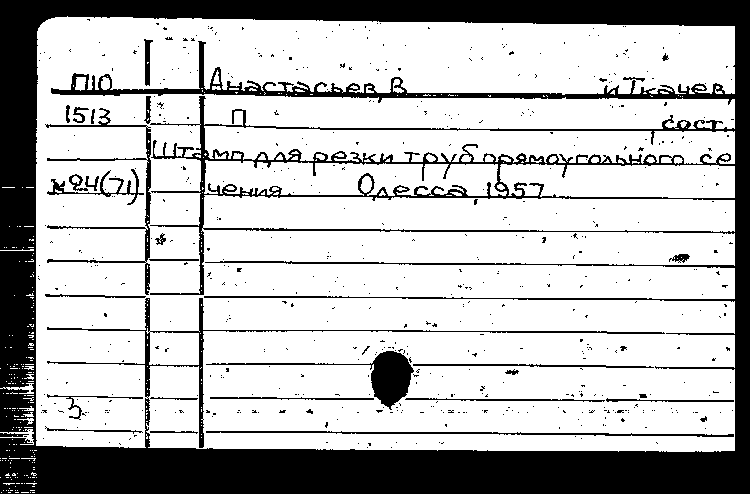 П10 Анастасьев, В и Ткачев,
1513 П сост.
Штамп для резки труб прямоугольного се
№24(71) чения. Одесса, 1957.
3